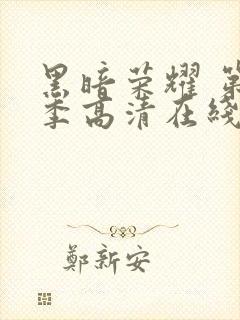 黑暗荣耀 第
季高清在线
鄭新安